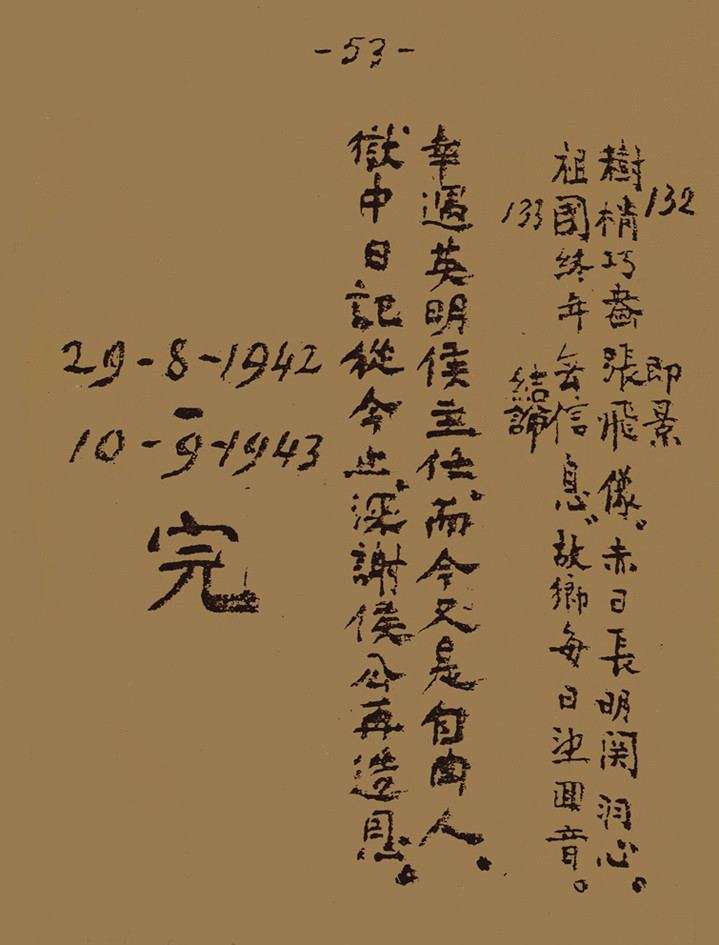 - 53 -
132
即景
樹梢巧畫張飛像。赤日長明関羽心。
祖國終年無信息，故鄉每日望囬音。
133
結論
幸遇英明侯主任，而今又是自由人。
獄中日記從今止，深謝侯公再造恩。
29-8-1942
-
10-9-1943
完